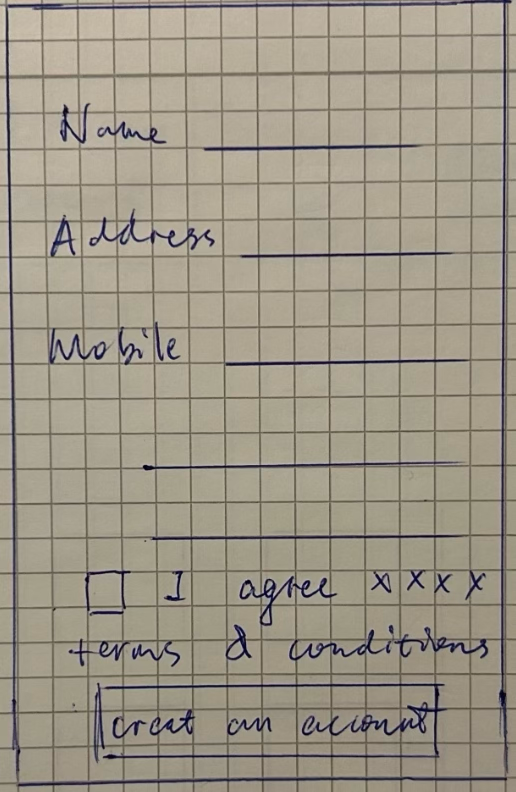 Name
Address
Mobile
I agree xxxx
terms & conditions
creat an account